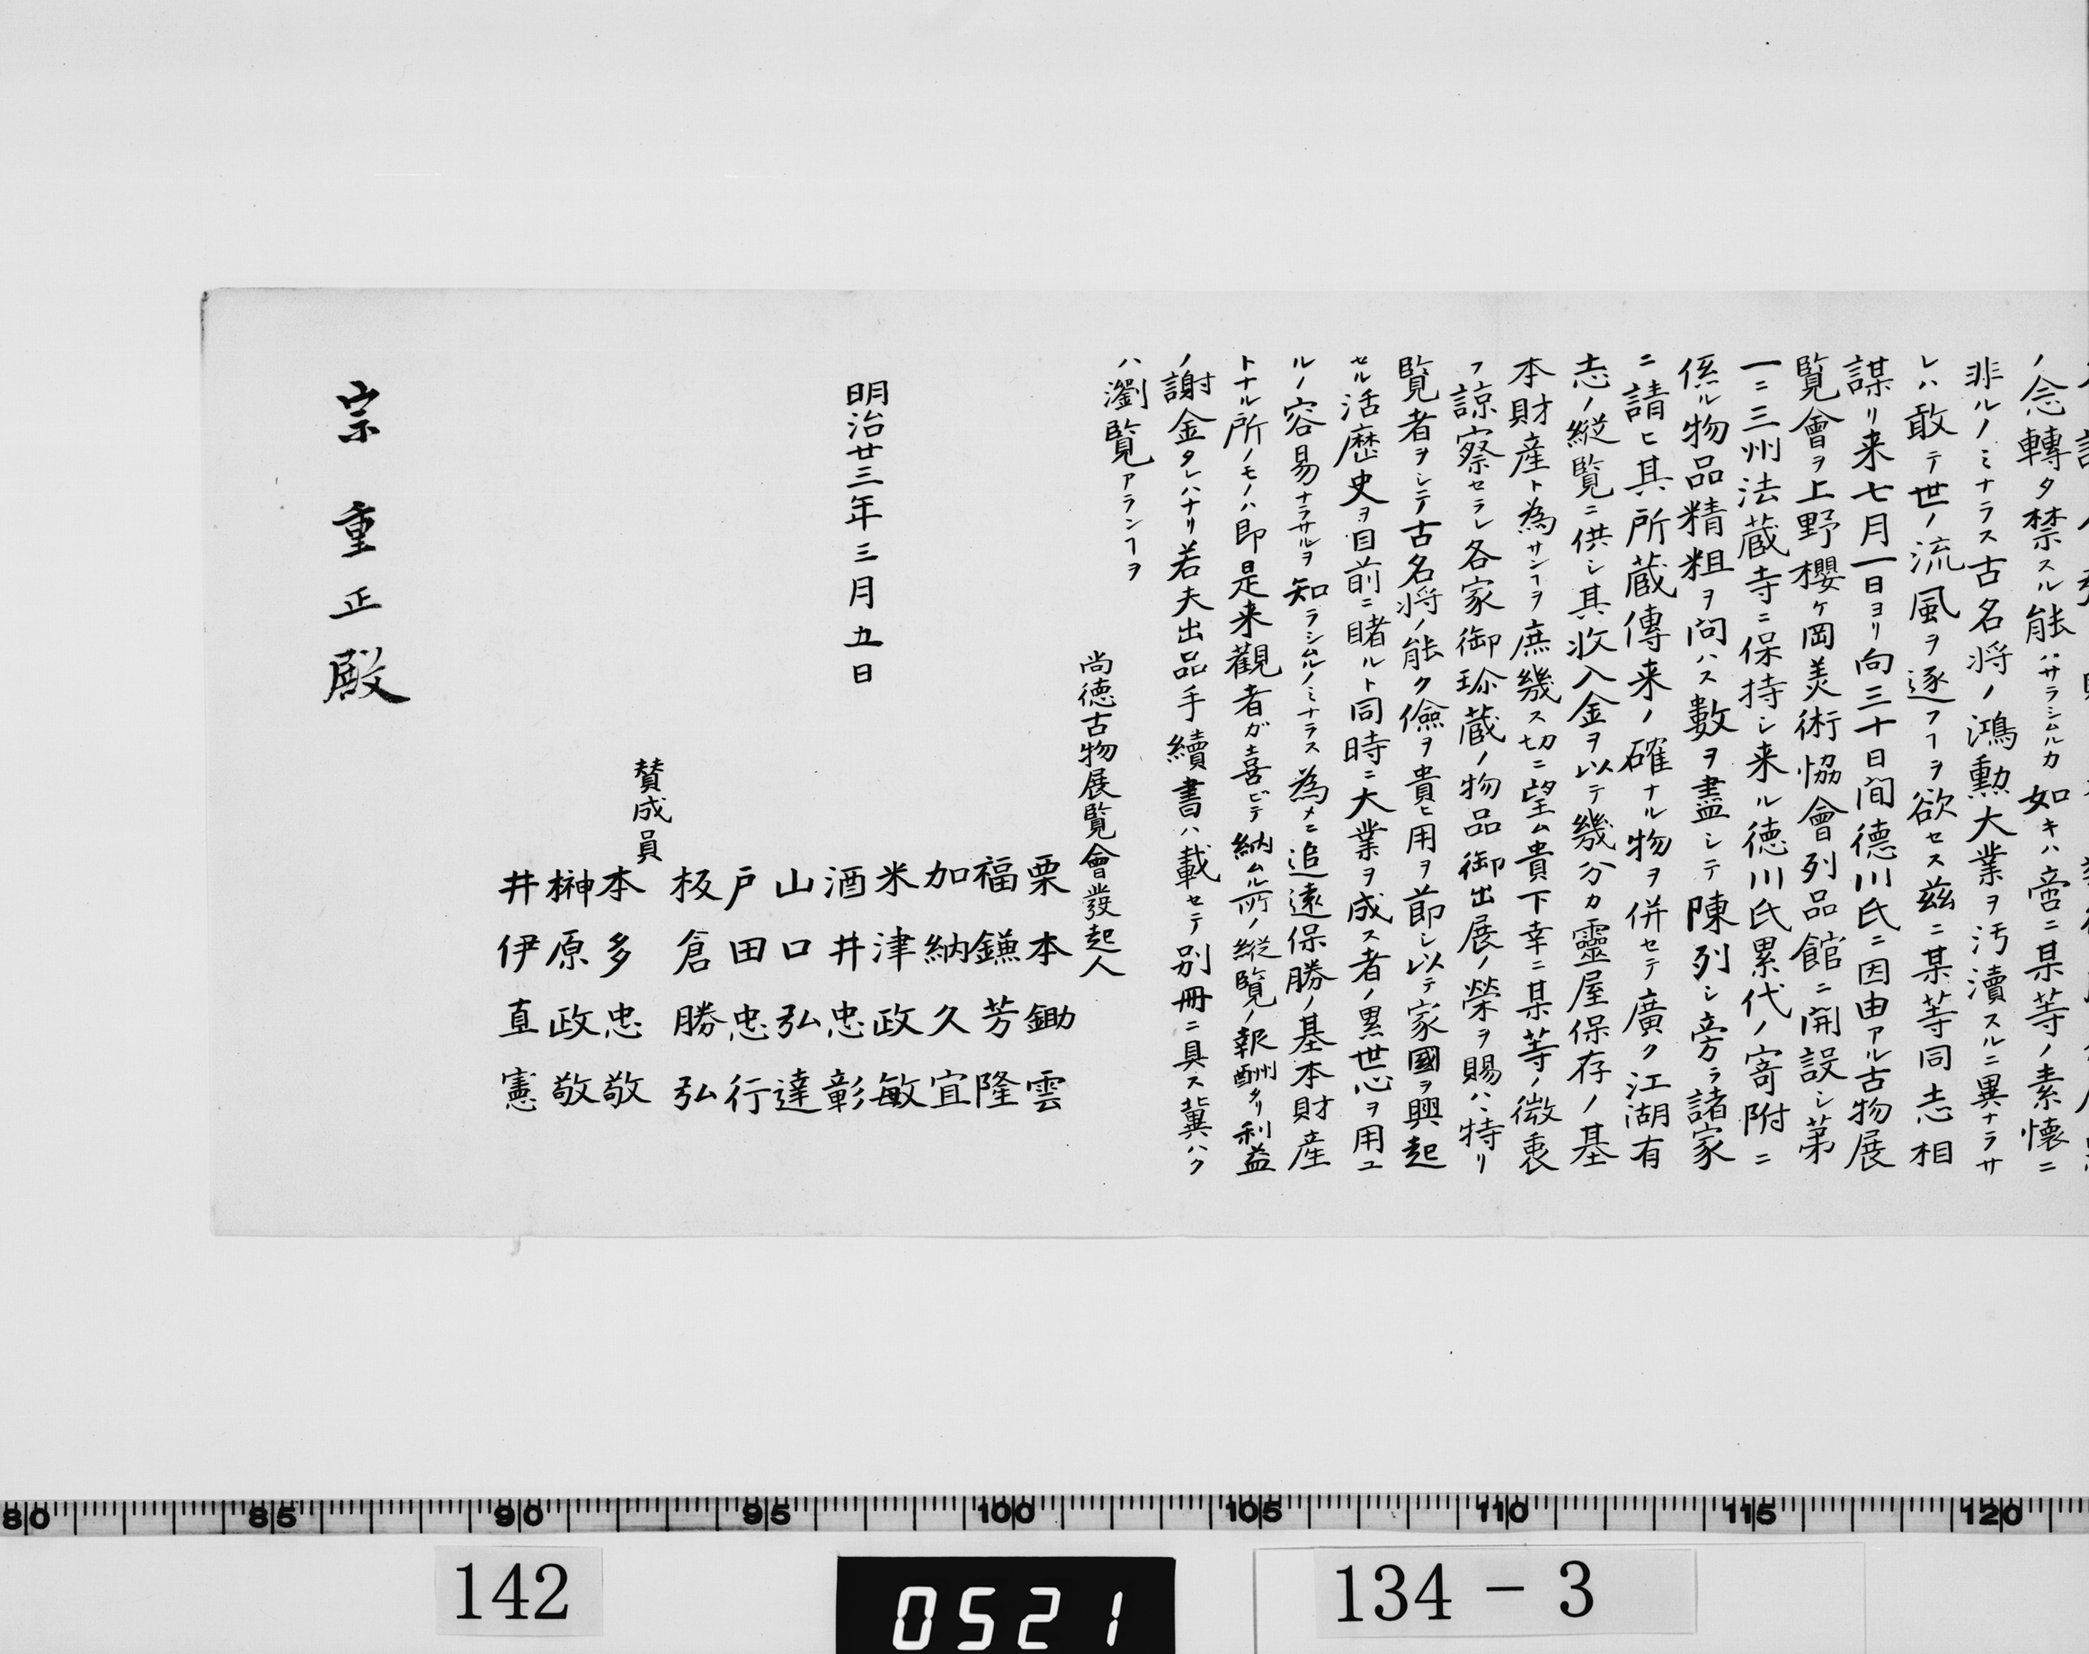 ノ念轉タ禁スル能ハサラシムルカ如キハ啻ニ某等ノ素懐ニ
非ルノミナラス古名将ノ鴻勲大業ヲ汚瀆スルニ異ナラサ
レハ敢テ世ノ流風ヲ逐フヿヲ欲セス茲ニ某等同志相
謀リ来七月一日ヨリ向三十日間徳川氏ニ因由アル古物展
覧會ヲ上野櫻ケ岡美術協會列品館ニ開設シ第
一ニ三州法蔵寺ニ保持シ来ル徳川氏累代ノ寄附ニ
係ル物品精粗ヲ問ハス數ヲ盡シテ陳列シ旁ラ諸家
ニ請ヒ其所蔵傳来ノ確ナル物ヲ併セテ廣ク江湖有
志ノ縦覧ニ供シ其收入金ヲ以テ幾分カ靈屋保存ノ基
本財産ト為サンヿヲ庶幾ス切ニ望ム貴下幸ニ某等ノ微衷
ヲ諒察セラレ各家御珎蔵ノ物品御出展ノ榮ヲ賜ハヽ特リ
覧者ヲシテ古名将ノ能ク儉ヲ貴ヒ用ヲ節シ以テ家國ヲ興起
セル活歴史ヲ目前ニ睹ルト同時ニ大業ヲ成ス者ノ累世心ヲ用ユ
ルノ容易ナラサルヲ知ラシムルノミナラス為メニ追遠保勝ノ基本財産
トナル所ノモノハ即是来觀者ガ喜ビテ納ムル所ノ縦覧ノ報酬タリ利益
ノ謝金タレハナリ若夫出品手續書ハ載セテ別冊ニ具ス冀ハク
ハ瀏覧アランヿヲ
尚徳古物展覧會發起人
栗本鋤雲
福鎌芳隆
加納久宜
米津政敏
酒井忠彰
山口弘達
戸田忠行
板倉勝弘
明治廿三年三月五日
賛成員
本多忠敬
榊原政敬
井伊直憲
宗重正殿
80 85 90 95 100 105 110 115 120
142
0521
134-3